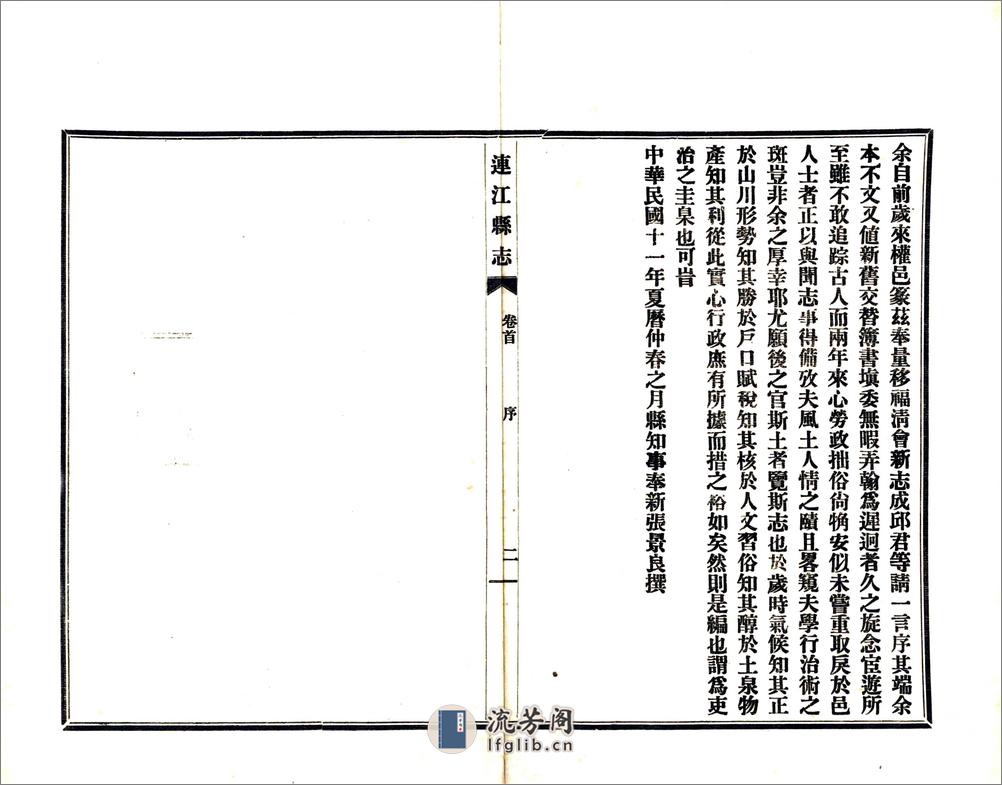 余自前歲來權邑篆茲奉量移福淸會新志成邱君等請一言序其端余
本不文又値新舊交替簿書塡委無暇弄翰爲遲迴者久之旋念宦遊所
至雖不敢追踪古人而兩年來心勞政拙俗尙觕安似未嘗重取戾於邑
人士者正以與聞志事得備攷夫風土人情之賾且畧窺夫學行治術之
斑豈非余之厚幸耶尤願後之官斯土者覽斯志也於歲時氣候知其正
於山川形勢知其勝於戶口賦稅知其核於人文習俗知其醇於土泉物
產知其利從此實心行政庶有所據而措之裕如矣然則是編也謂爲吏
治之圭臬也可旹
中華民國十一年夏曆仲春之月縣知事奉新張景良撰
連江縣志
卷首
序
二
流芳阁
lfglib.cn